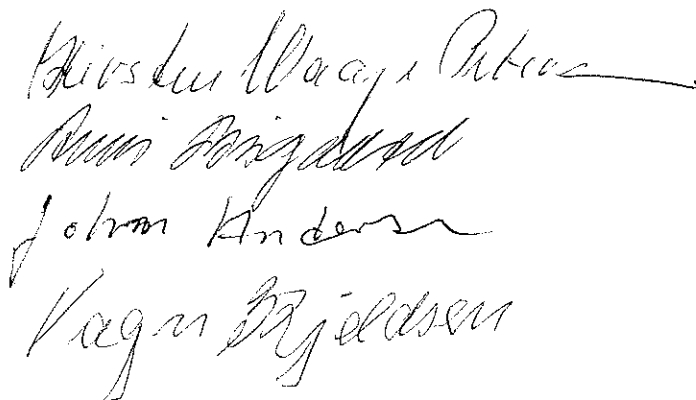 Kirsten Waage Petersen
Anni Bisgaard
Johan Andersen
Vagn Kjeldsen